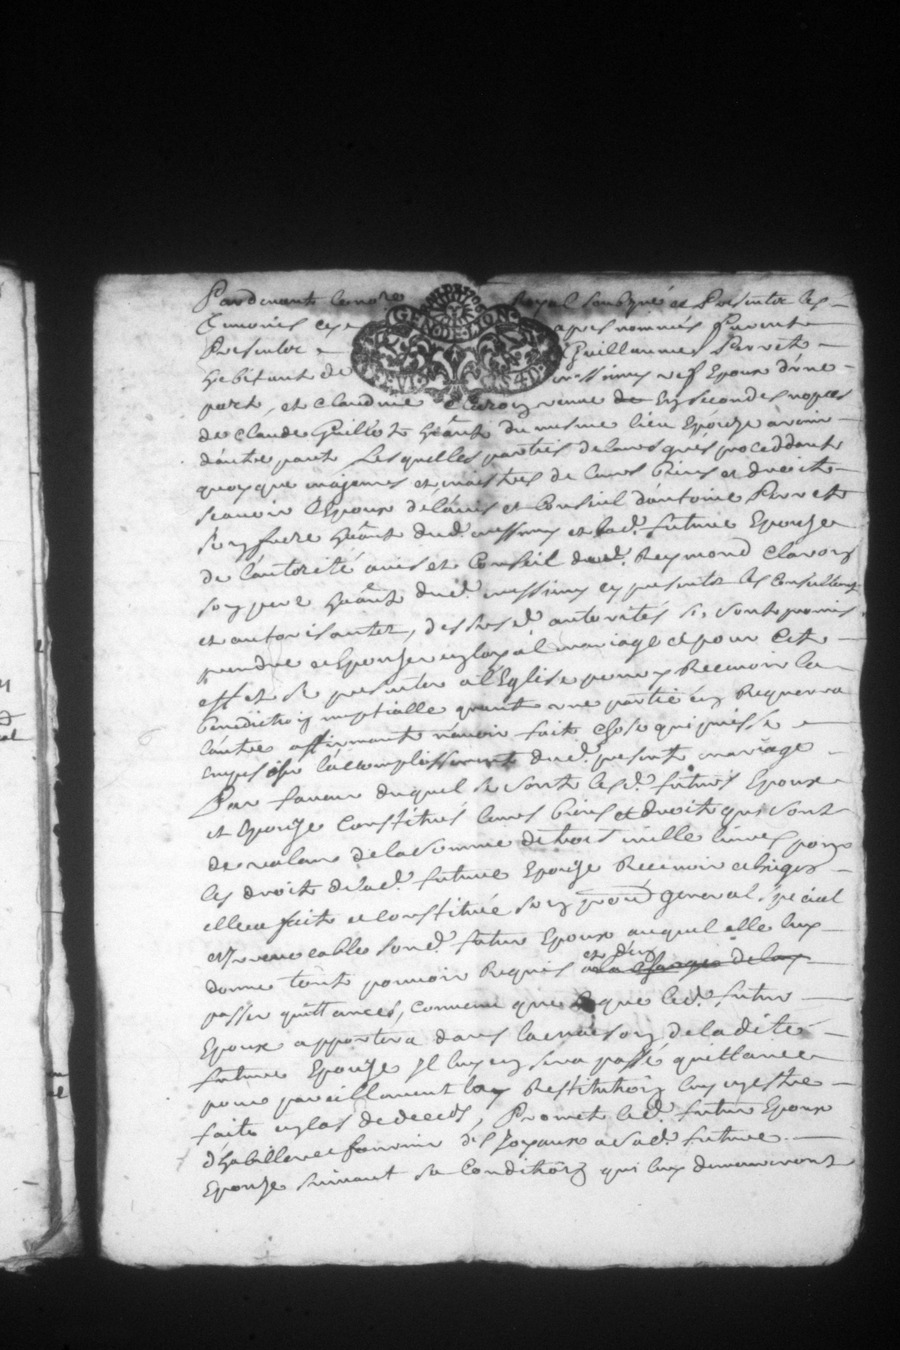 Pardevant le no.re Royal soubzigné et Presentz les
temoins cy apres nommés furent
Presentz Guillaume Perret
habitant de messimy vef Epoux d'une
part, et Claudine Clavoy veuve de En secondes nopces
de Claude Guillot hãnt du mesme lieu Epouze avenir
dautre part. Lesquelles parties de leurs gres proceddant
quoyque majeures et maistres de leurs biens et droits
scavoir l'Epoux de l'avis et Conseil d'antoine Perret
son frere hãnt dud. messimy et lad. future Epouze
de l'autorité avis et Conseil dud. Reymond Clavoy
son pere hãnt dud. messimy cy presentz les Conseillant
et autorisantz, desd. autorités se sont promis
prendre et Epouzer en loyal mariage et pour cet
effet se presenter a l'Eglise pour y Recevoir la
benediction nuptialle quant une partie en Requerra
l'autre affirmant n'avoir fait chose qui puisse
empescher l'acomplissement dud. present mariage
Par faveur duquel se sont lesd. futurs Epoux
et Epouze Constitués leurs biens et droits qui sont
de valeur de la somme de trois mille livres pour
les droits de lad. future Epouze Recevoir et Exiger
elle a fait et constitué son procur general special
et irrevocable sond. futur Epoux auquel elle luy
donne tout pouvoir Requis et d'en
passer quittances, convenu que ce que led. futur
Epoux apportera dans la maison de la dite
future Epouze Il luy en sera passé quittance
pour pareillement la Restitution luy en estre
faite en cas de deceds, Promet led. futur Epoux
d'habiller et fournir des Joyaux a sad. future
Epouze suivant sa Condition qui luy demeureront
GEN. DE LYON